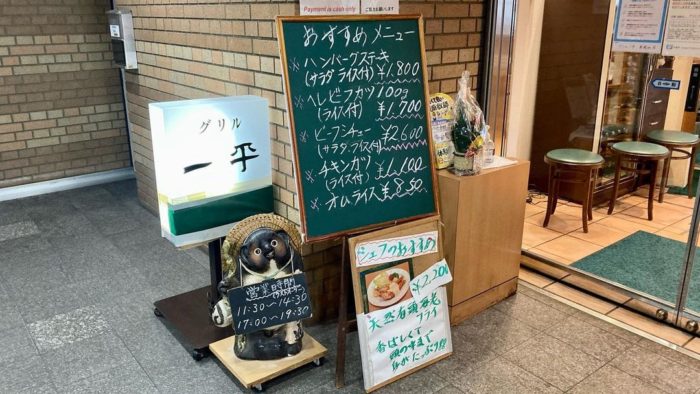 Payment is cash only
おすすめメニュー
※ハンバーグステーキ
(サラダ ライス付) ¥1,800
※ヘレビフカツ100g
(ライス付) ¥1,700
※ビーフシチュー ¥2,600
(サラダ・ライス付)
※チキンカツ ¥1,100
(ライス付)
※オムライス ¥850
グリル
一平
営業時間
11:30〜14:30
17:00〜19:30
シェフのおすすめ
¥2,20
天然有頭海老
フライ
香ばしくて
頭の中まで
身がたっぷり!!!